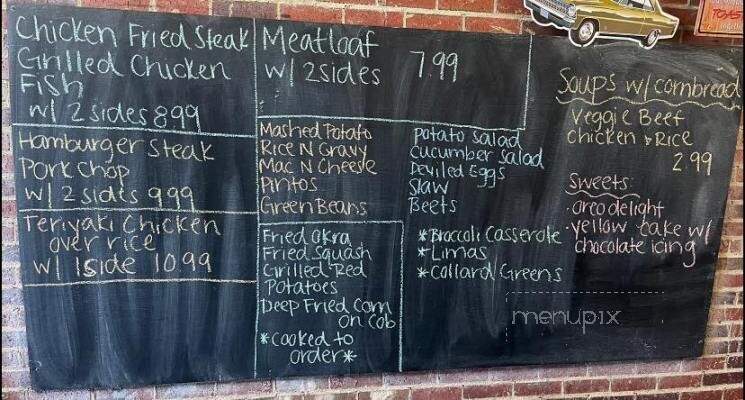 Chicken Fried Steak
Grilled Chicken
Fish
w/ 2 sides 8.99
Hamburger Steak
Pork Chop
w/ 2 sides 9.99
Teriyaki Chicken
over rice
w/ 1side 10.99
Meatloaf
w/ 2sides 7.99
Mashed Potato
Rice N Gravy
Mac N Cheese
Pintos
Green Beans
Fried Okra
Fried Squash
Grilled Red
Potatoes
Deep Fried Corn
on Cob
*Cooked to
order*
potato salad
cucumber salad
Deviled Eggs
Slaw
Beets
*Broccoli Casserole
*Limas
*Collard Greens
Soups w/ cornbread
Veggie Beef
Chicken & Rice
2.99
Sweets:
·oreo delight
·yellow cake w/
chocolate icing
menupix